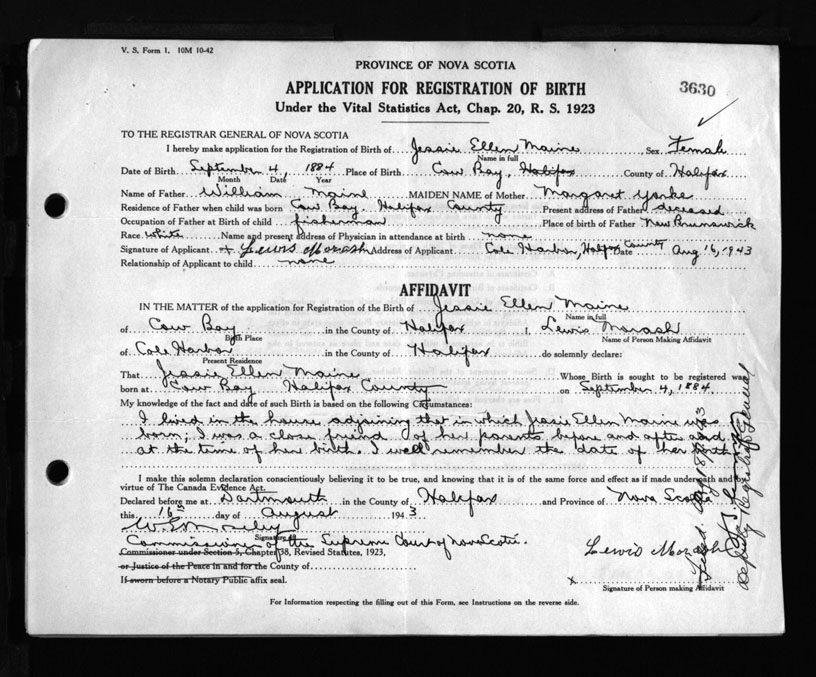 V. S. Form 1. 10M 10-42
PROVINCE OF NOVA SCOTIA
APPLICATION FOR REGISTRATION OF BIRTH
3630
Under the Vital Statistics Act, Chap. 20, R. S. 1923
TO THE REGISTRAR GENERAL OF NOVA SCOTIA
I hereby make application for the Registration of Birth of Jessie Ellen Maine Sex Female
Name in full
Date of Birth September 4, 1884 Place of Birth Cow Bay, Halifax County of Halifax
Month Date Year
Name of Father William Maine MAIDEN NAME of Mother Margaret Yorke
Residence of Father when child was born Cow Bay, Halifax County Present address of Father deceased
Occupation of Father at Birth of child fisherman Place of birth of Father New Brunswick
Race white Name and present address of Physician in attendance at birth none
Signature of Applicant x Lewis Morash Address of Applicant Cole Harbor, Halifax County Date Aug 16, 1943
Relationship of Applicant to child none
AFFIDAVIT
IN THE MATTER of the application for Registration of the Birth of Jessie Ellen Maine
Name in full
of Cow Bay in the County of Halifax I, Lewis Morash
Birth Place Name of Person Making Affidavit
of Cole Harbor in the County of Halifax do solemnly declare:
Present Residence
That Jessie Ellen Maine Whose Birth is sought to be registered was
born at Cow Bay Halifax County on September 4, 1884
My knowledge of the fact and date of such Birth is based on the following Circumstances:
I lived in the house adjoining that in which Jessie Ellen Maine was
born; I was a close friend of her parents before and after and
at the time of her birth. I well remember the date of her birth
I make this solemn declaration conscientiously believing it to be true, and knowing that it is of the same force and effect as if made under oath and by
virtue of The Canada Evidence Act.
Declared before me at Dartmouth in the County of Halifax and Province of Nova Scotia
this 16th day of August 1943
Signature of
Commissioner of the Supreme Court of Nova Scotia.
Commissioner under Section 5, Chapter 38, Revised Statutes, 1923,
Lewis Morash
or Justice of the Peace in and for the County of
If sworn before a Notary Public affix seal.
x
Signature of Person making Affidavit
For Information respecting the filling out of this Form, see Instructions on the reverse side.
Deputy Registrar General